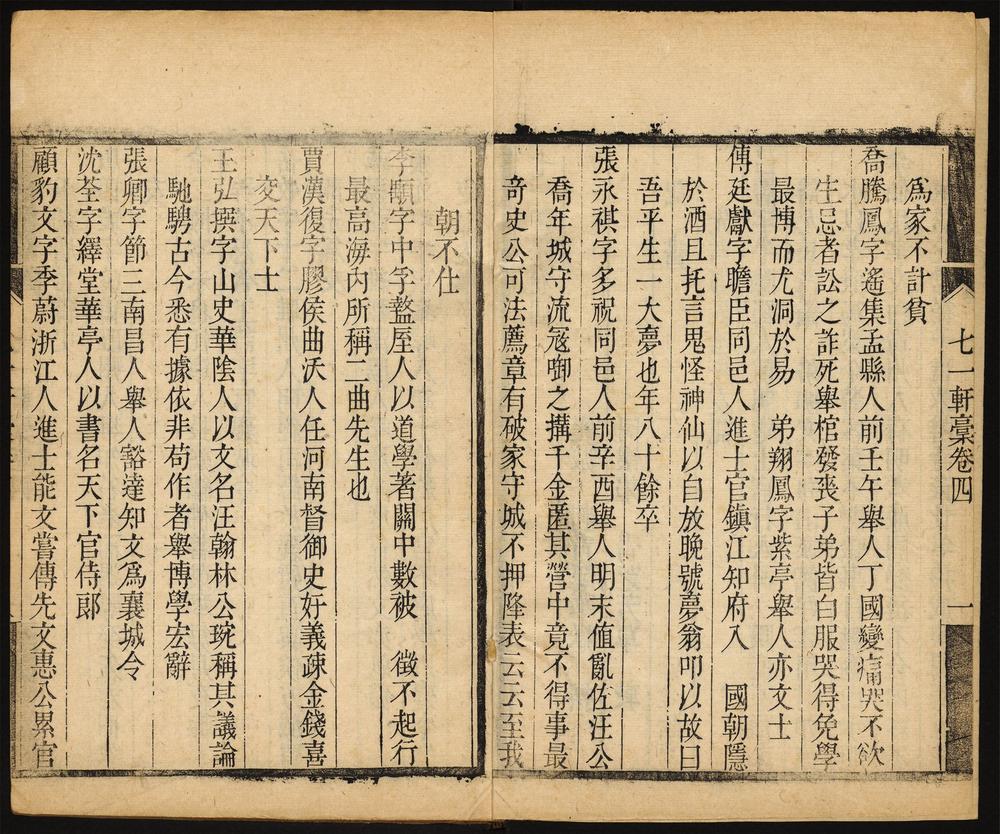 七一軒藁卷四
一
爲家不計貧
喬騰鳳字遙集孟縣人前壬午舉人丁國變痛哭不欲
生忌者訟之詐死舉棺發喪子弟皆白服哭得免學
最博而尤洞於易 弟翔鳳字紫亭舉人亦文士
傅廷獻字瞻臣同邑人進士官鎮江知府入 國朝隱
於酒且托言鬼怪神仙以自放晚號夢翁叩以故曰
吾平生一大夢也年八十餘卒
張永祺字多祝同邑人前辛酉舉人明末值亂佐汪公
喬年城守流寇啣之搆千金匿其營中竟不得事最
奇史公可法薦章有破家守城不押隆表云云至我
朝不仕
李顒字中孚盩厔人以道學著關中數被 徵不起行
最高海內所稱二曲先生也
賈漢復字膠侯曲沃人任河南督御史好義疎金錢喜
交天下士
王弘撰字山史華陰人以文名汪翰林公琬稱其議論
馳騁古今悉有據依非苟作者舉博學宏辭
張卿字節三南昌人舉人豁達知文爲襄城令
沈荃字繹堂華亭人以書名天下官侍郎
顧豹文字季蔚浙江人進士能文嘗傳先文惠公累官